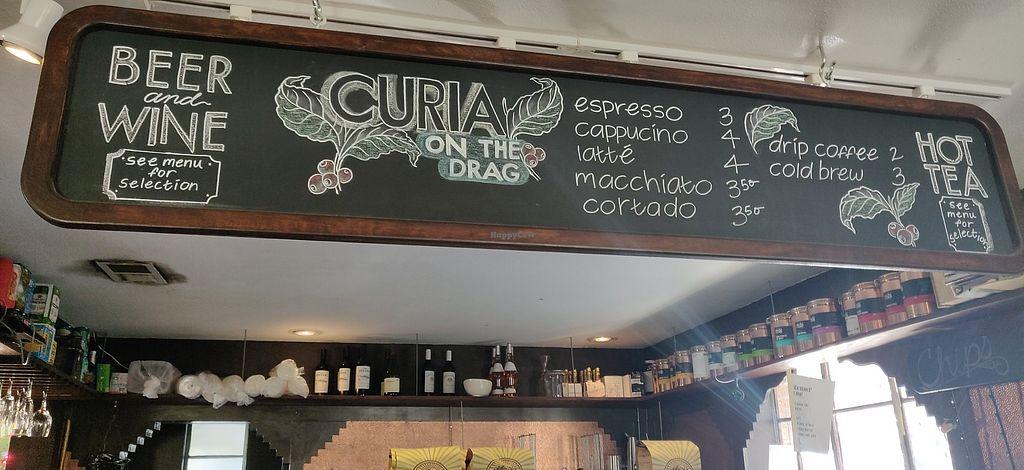 BEER
and
WINE
see menu
for
selection
CURIA
ON THE
DRAG
espresso 3
cappucino 4
latté 4
macchiato 3⁵⁰
cortado 3⁵⁰
drip coffee 2
cold brew 3
HOT
TEA
see
menu
for
selection
HappyCow
Chips